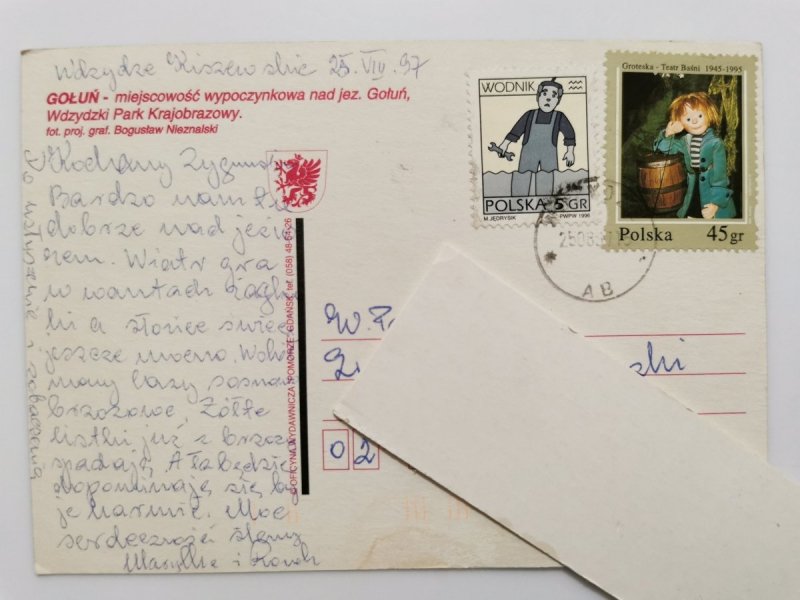 Wdzydze Kiszewskie 25.VIII.97
GOŁUŃ - miejscowość wypoczynkowa nad jez. Gołuń,
Wdzydzki Park Krajobrazowy.
fot. proj. graf. Bogusław Nieznalski
Kochany
Bardzo nam tu
dobrze nad jezio
rem. Wiatr gra
w wantach żagló
a słońce świeci
jeszcze mocno. Wokół
mamy lasy sosnowo
brzozowe. Żółte
listki już z brzóz
spadają. A łabędzie
dopominają się by
je karmić. Moc
serdeczności ślemy
i
Do usłyszenia i zobaczenia
© OFICYNA WYDAWNICZA "POMORZE" GDAŃSK, tel. (058) 48-54-26
WODNIK
POLSKA 5 GR
M. JEDRYSIK PWPW 1996
Groteska - Teatr Baśni 1945-1995
Polska 45gr
AB
W.
ski
02